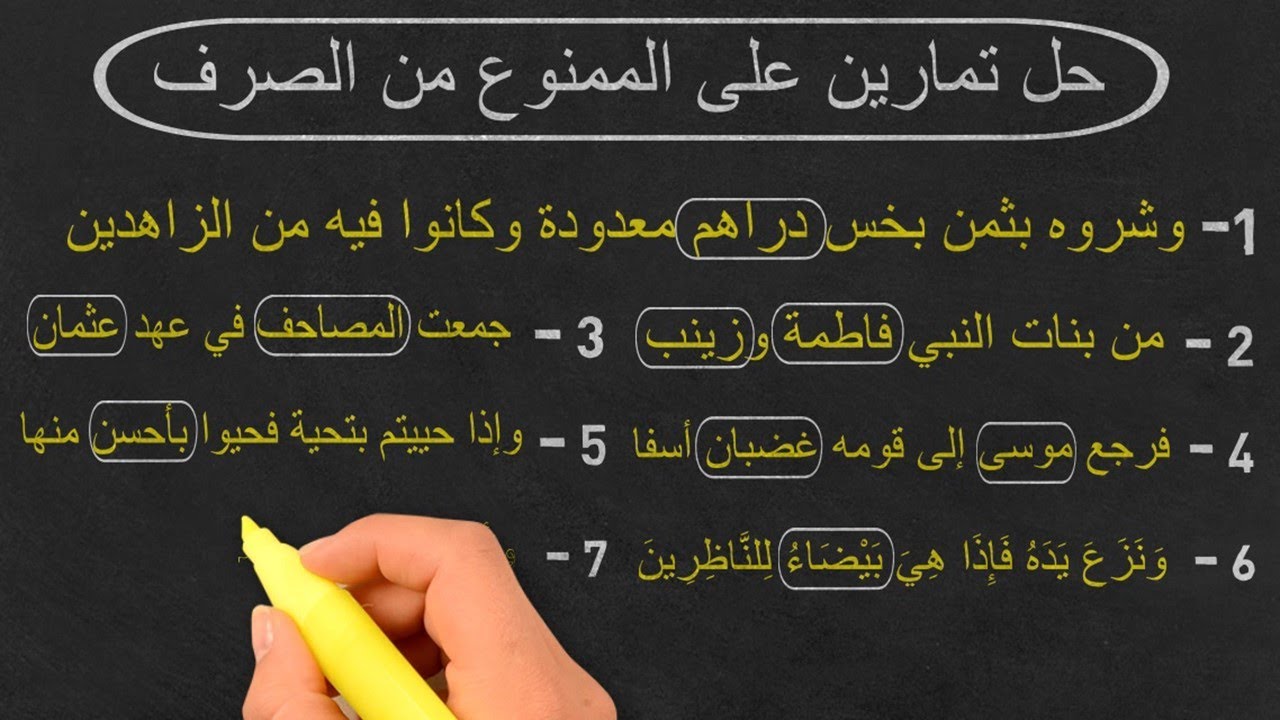 حل تمارين على الممنوع من الصرف
1- وشروه بثمن بخس دراهم معدودة وكانوا فيه من الزاهدين
2 - من بنات النبي فاطمة وزينب
3 - جمعت المصاحف في عهد عثمان
4 - فرجع موسى إلى قومه غضبان أسفا
5 - وإذا حييتم بتحية فحيوا بأحسن منها
6 - وَنَزَعَ يَدَهُ فَإِذَا هِيَ بَيْضَاءُ لِلنَّاظِرِينَ
7 -